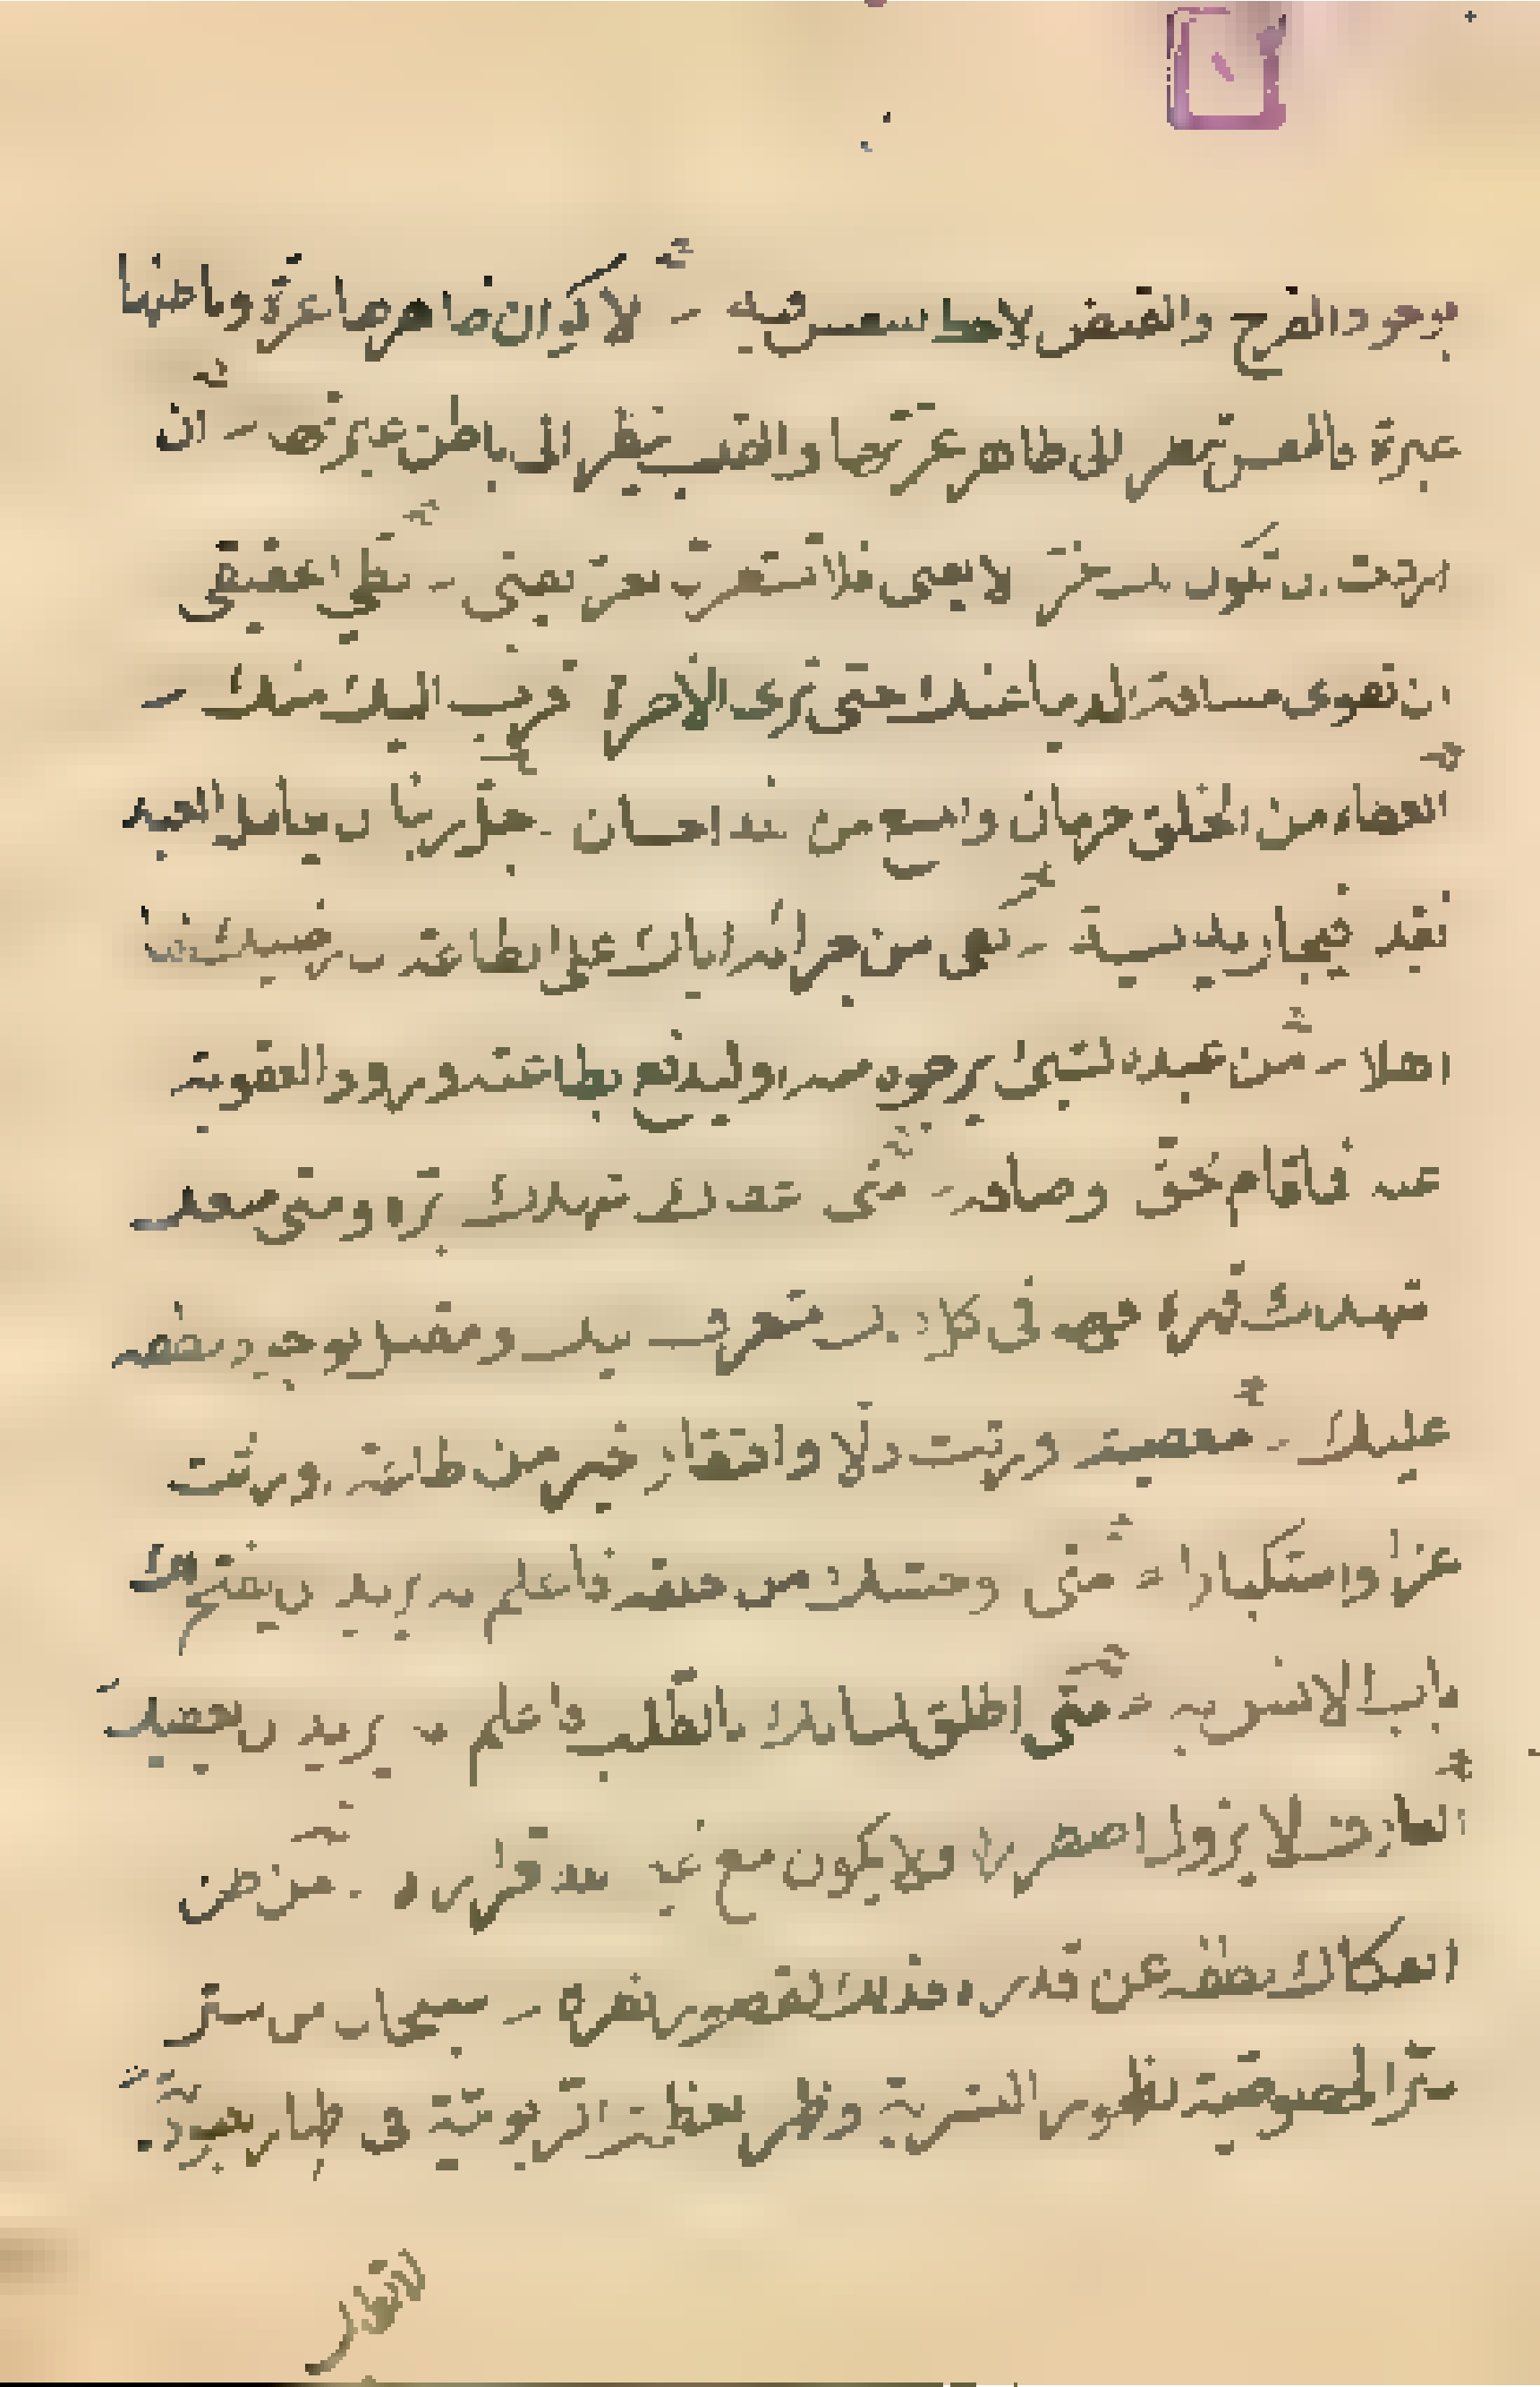 بوجود الفرح والقبض لاحظ للنفس فيه الاكوان ظاهرها عزة وباطنها
عبرة فالنفس تنظر الى ظاهر عزتها والقلب ينظر الى باطن عبرتها ان
اردت ان تكون لك عز لا يفنى فلا تستعزن بعز يفنى الطي الحقيقي
ان تطوى مسافة الدنيا عنك حتى ترى الآخرة اقرب اليك منك
العطاء من الخلق حرمان والمنع من الله احسان جل ربنا ان يعامل العبد
نقد فيجازيه نسية كفى من جزائه اياك على الطاعة ان رضيك لها
اهلا من عبده لشئ يرجوه منه او ليدفع بطاعته ورود العقوبة
عنه فاقام بحق وصافه متى اعطاك اشهدك بره ومتى منعك
اشهدك قهره فهو في كل ذلك متعرف اليك ومقبل بوجود لطفه
عليك معصية ورثت ذلا وافتقار خير من طاعة اورثت
عزا واستكبارا متى اوحشك من خلقه فاعلم انه يريد ان يفتح لك
باب الانس به متى اطلق لسانك بالطلب فاعلم انه يريد ان يعطيك
العارف لا يزول اضطراره ولا يكون مع غير الله قراره من ظن
انفكاك لطفه عن قدره فذلك لقصور نظره سبحان من ستر
سر الخصوصية بظهور البشرية وظهر بعظمة الربوبية في اظهار العبودية
لا تطلب